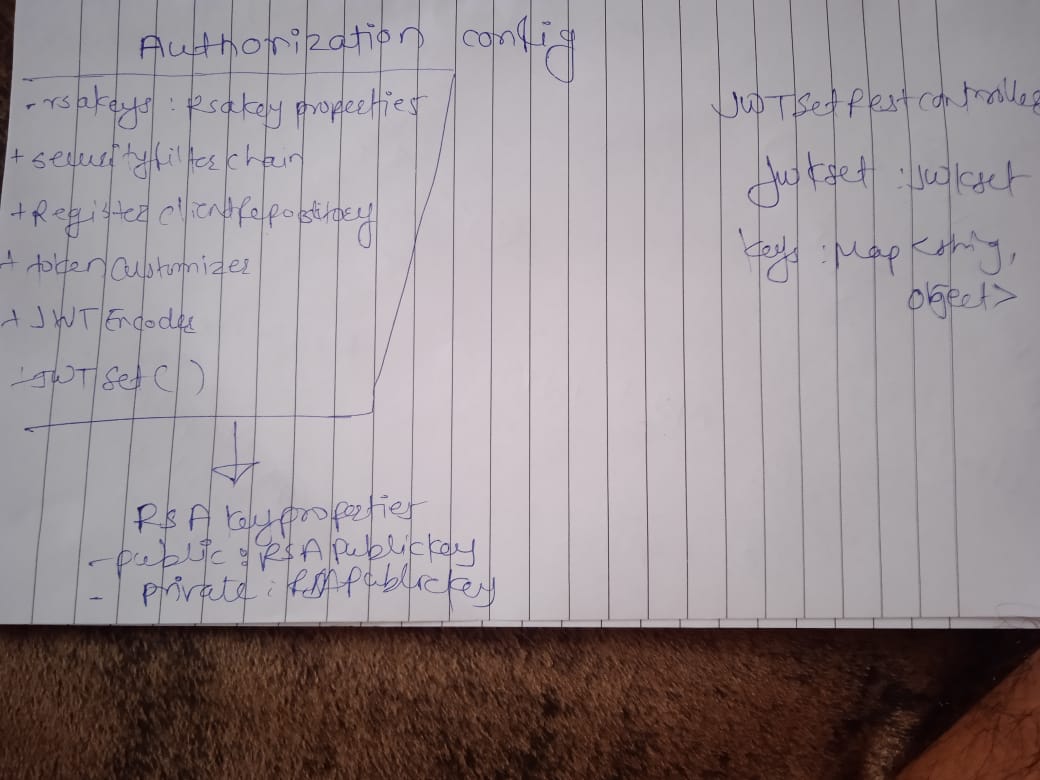 Authorization config
- rsakeys : Rsakey properties
+ securityfilter chain
+ Register clientRepository
+ token Customizer
+ JWT Encoder
- JWT Set ( )
RSA keyproperties
- public : RSA Publickey
- private : RSA Publickey
JWTSetRestcontroller
Jwkset : Jwkset
keys : Map <string,
object>